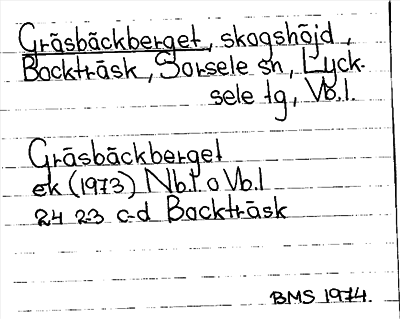 Gräsbäckberget, skogshöjd,
Backträsk, Sorsele sn, Lyck-
sele tg, Vb.l.
Gräsbäckberget
ek (1973) Nb.l. o Vb.l
24 23 c-d Backträsk
BMS 1974.